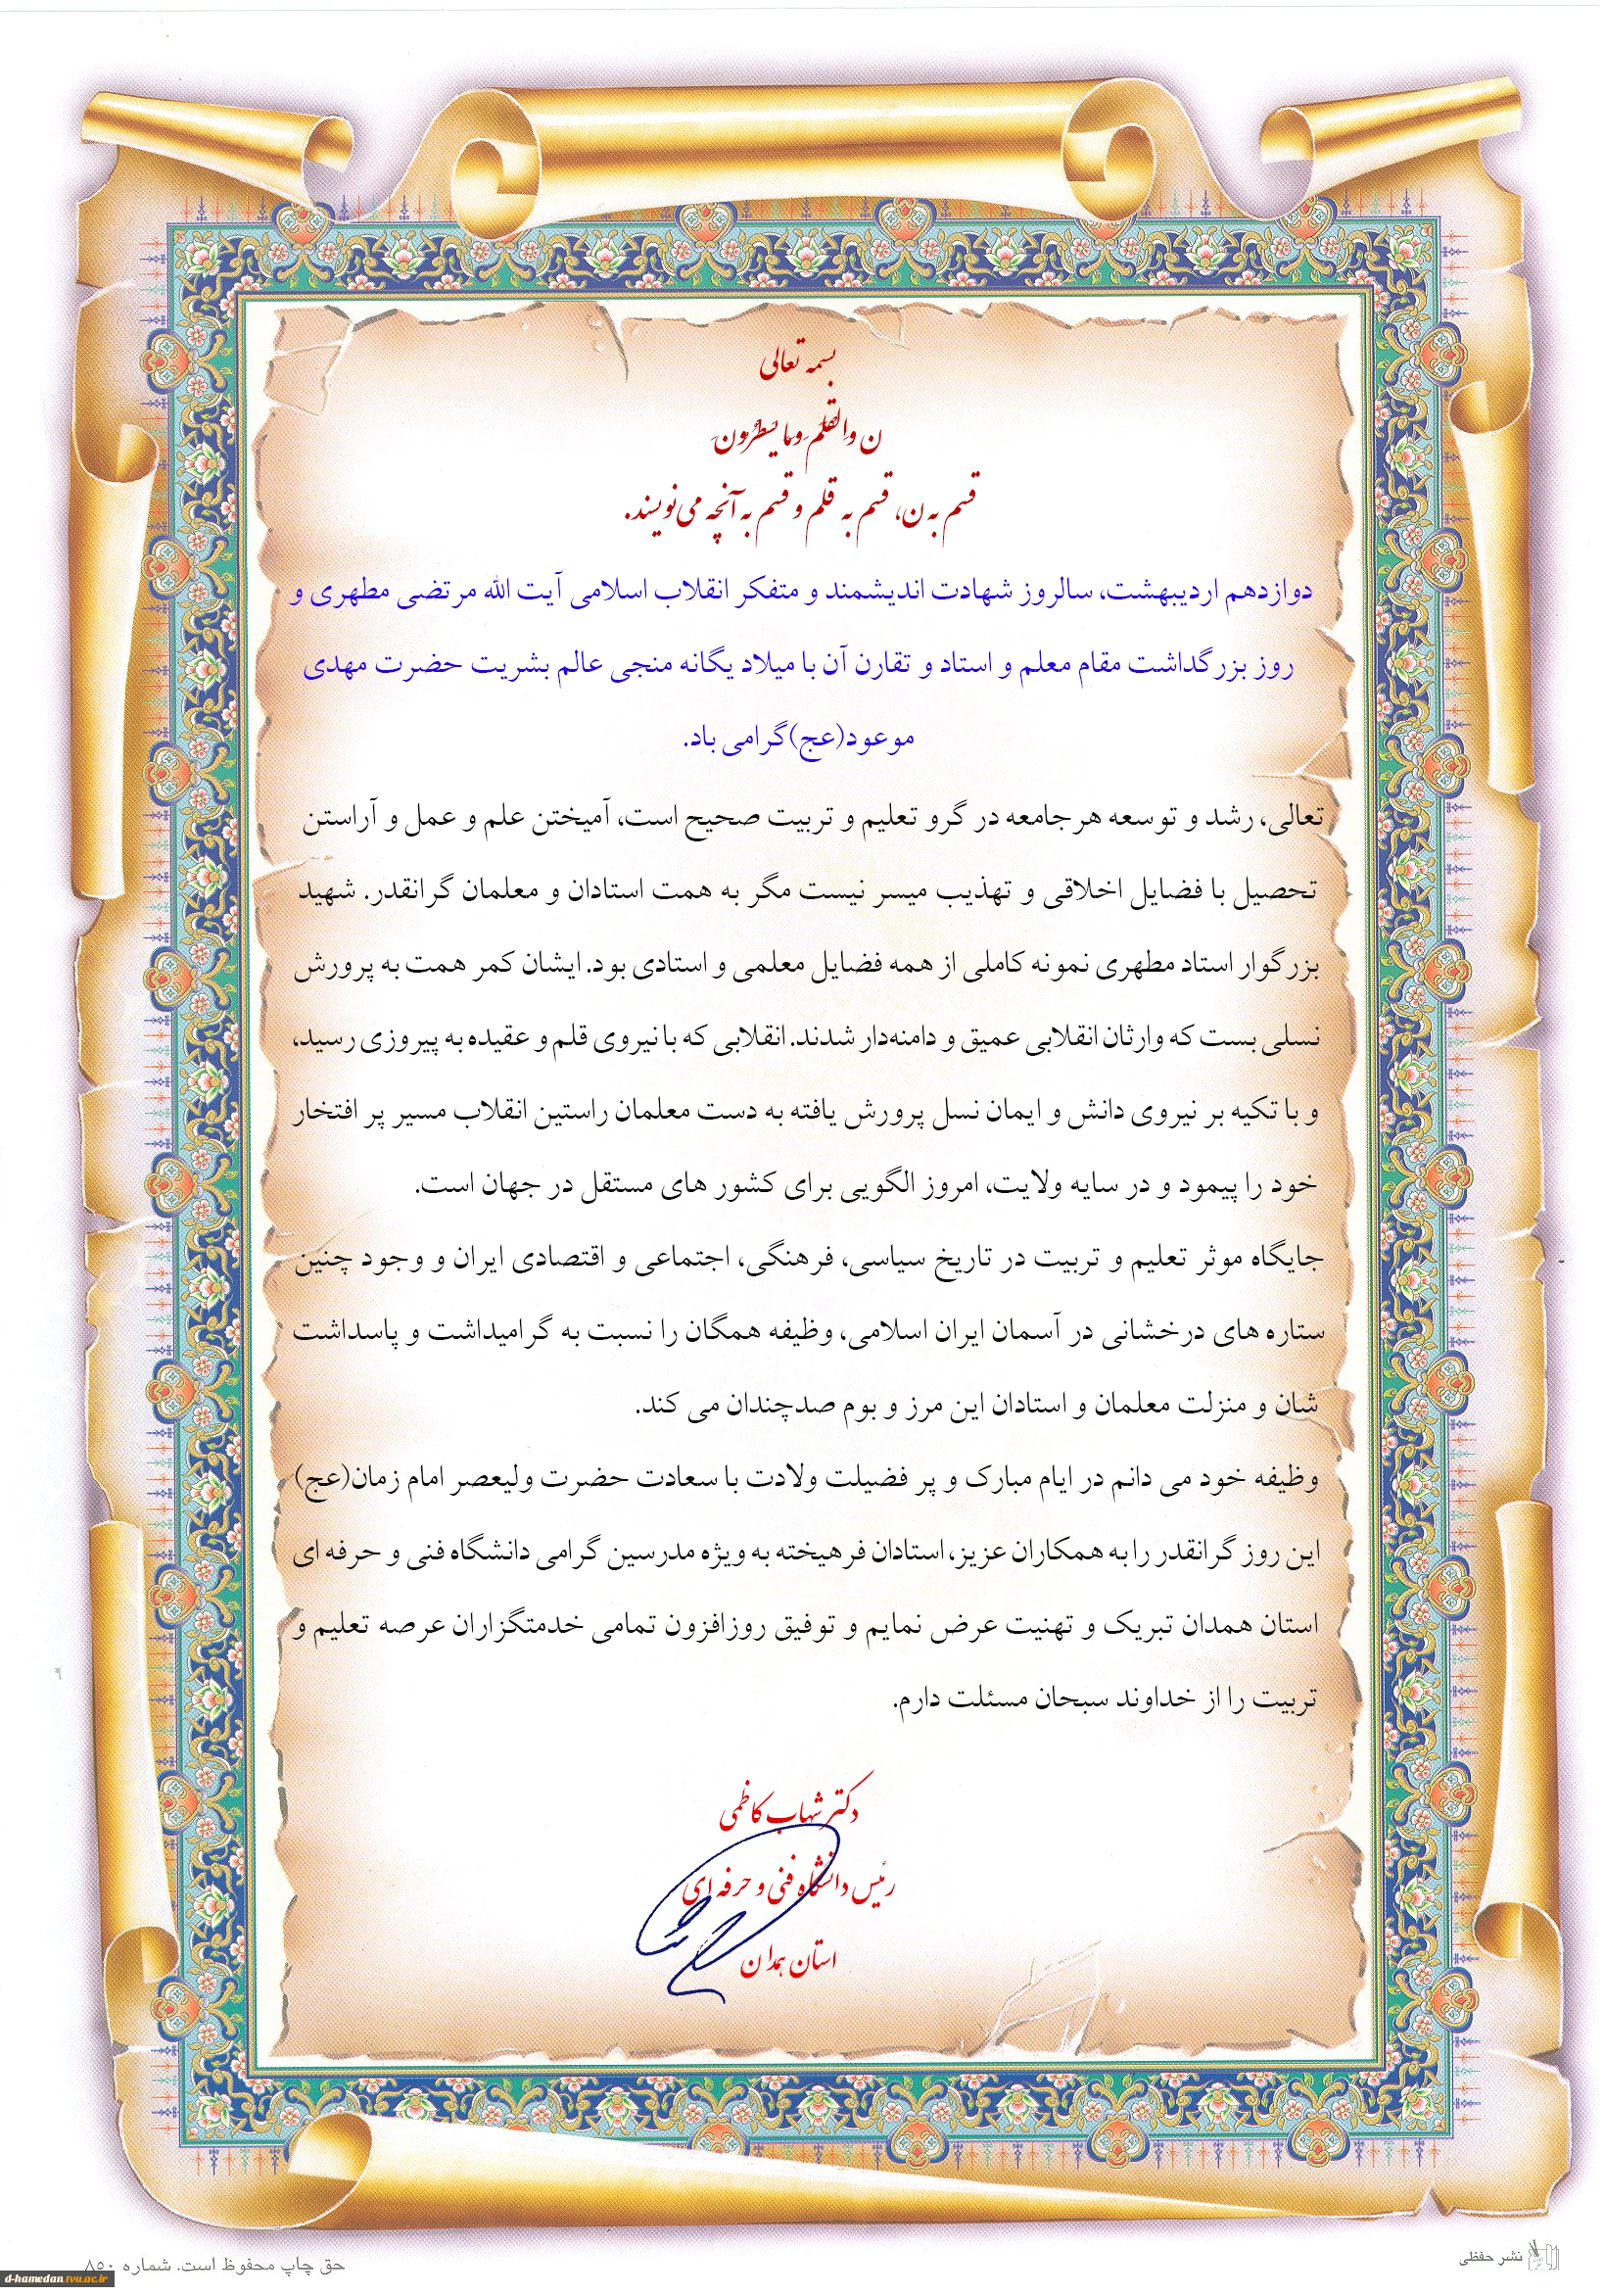 بسمه تعالی
ن والقلم وما یسطرون
قسم به ن، قسم به قلم و قسم به آنچه می‌نویسند.
دوازدهم اردیبهشت، سالروز شهادت اندیشمند و متفکر انقلاب اسلامی آیت الله مرتضی مطهری و
روز بزرگداشت مقام معلم و استاد و تقارن آن با میلاد یگانه منجی عالم بشریت حضرت مهدی
موعود(عج)گرامی باد.
تعالی، رشد و توسعه هرجامعه در گرو تعلیم و تربیت صحیح است، آمیختن علم و عمل و آراستن
تحصیل با فضایل اخلاقی و تهذیب میسر نیست مگر به همت استادان و معلمان گرانقدر. شهید
بزرگوار استاد مطهری نمونه کاملی از همه فضایل معلمی و استادی بود. ایشان کمر همت به پرورش
نسلی بست که وارثان انقلابی عمیق و دامنه‌دار شدند. انقلابی که با نیروی قلم و عقیده به پیروزی رسید،
و با تکیه بر نیروی دانش و ایمان نسل پرورش یافته به دست معلمان راستین انقلاب مسیر پر افتخار
خود را پیمود و در سایه ولایت، امروز الگویی برای کشور های مستقل در جهان است.
جایگاه موثر تعلیم و تربیت در تاریخ سیاسی، فرهنگی، اجتماعی و اقتصادی ایران و وجود چنین
ستاره های درخشانی در آسمان ایران اسلامی، وظیفه همگان را نسبت به گرامیداشت و پاسداشت
شان و منزلت معلمان و استادان این مرز و بوم صدچندان می کند.
وظیفه خود می دانم در ایام مبارک و پر فضیلت ولادت با سعادت حضرت ولیعصر امام زمان(عج)
این روز گرانقدر را به همکاران عزیز، استادان فرهیخته به ویژه مدرسین گرامی دانشگاه فنی و حرفه ای
استان همدان تبریک و تهنیت عرض نمایم و توفیق روزافزون تمامی خدمتگزاران عرصه تعلیم و
تربیت را از خداوند سبحان مسئلت دارم.
دکتر شهاب کاظمی
رئیس دانشگاه فنی و حرفه ای
استان همدان
نشر حفظی
حق چاپ محفوظ است. شماره ۸۵۰
d-hamedan.tvu.ac.ir